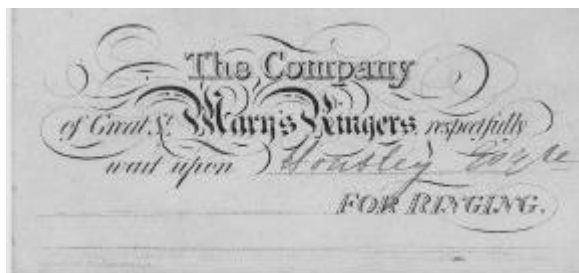 The Company
of Great St. Mary's Ringers respectfully
wait upon Housley Esqre
FOR RINGING.